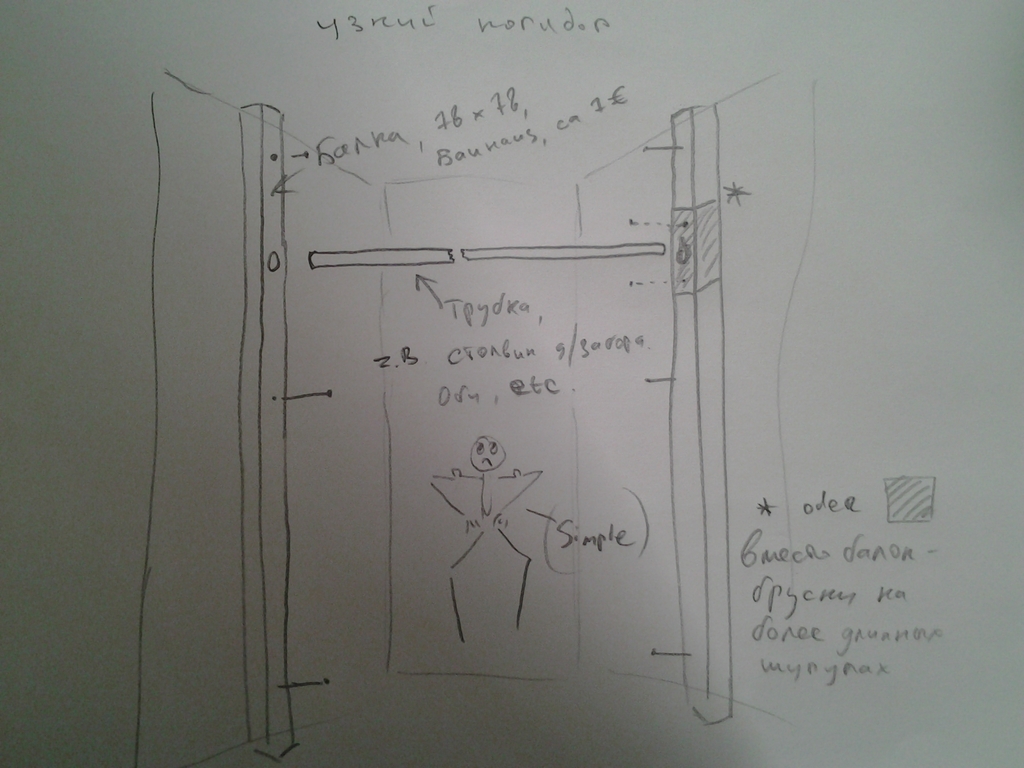 узкий коридор
Балка, 78 x 78,
Bauhaus, ca 7€
*
Трубка,
z.B. столбик д/забора
Obi, etc.
(Simple)
* oder
вместо балок -
бруски на
более длинных
шурупах